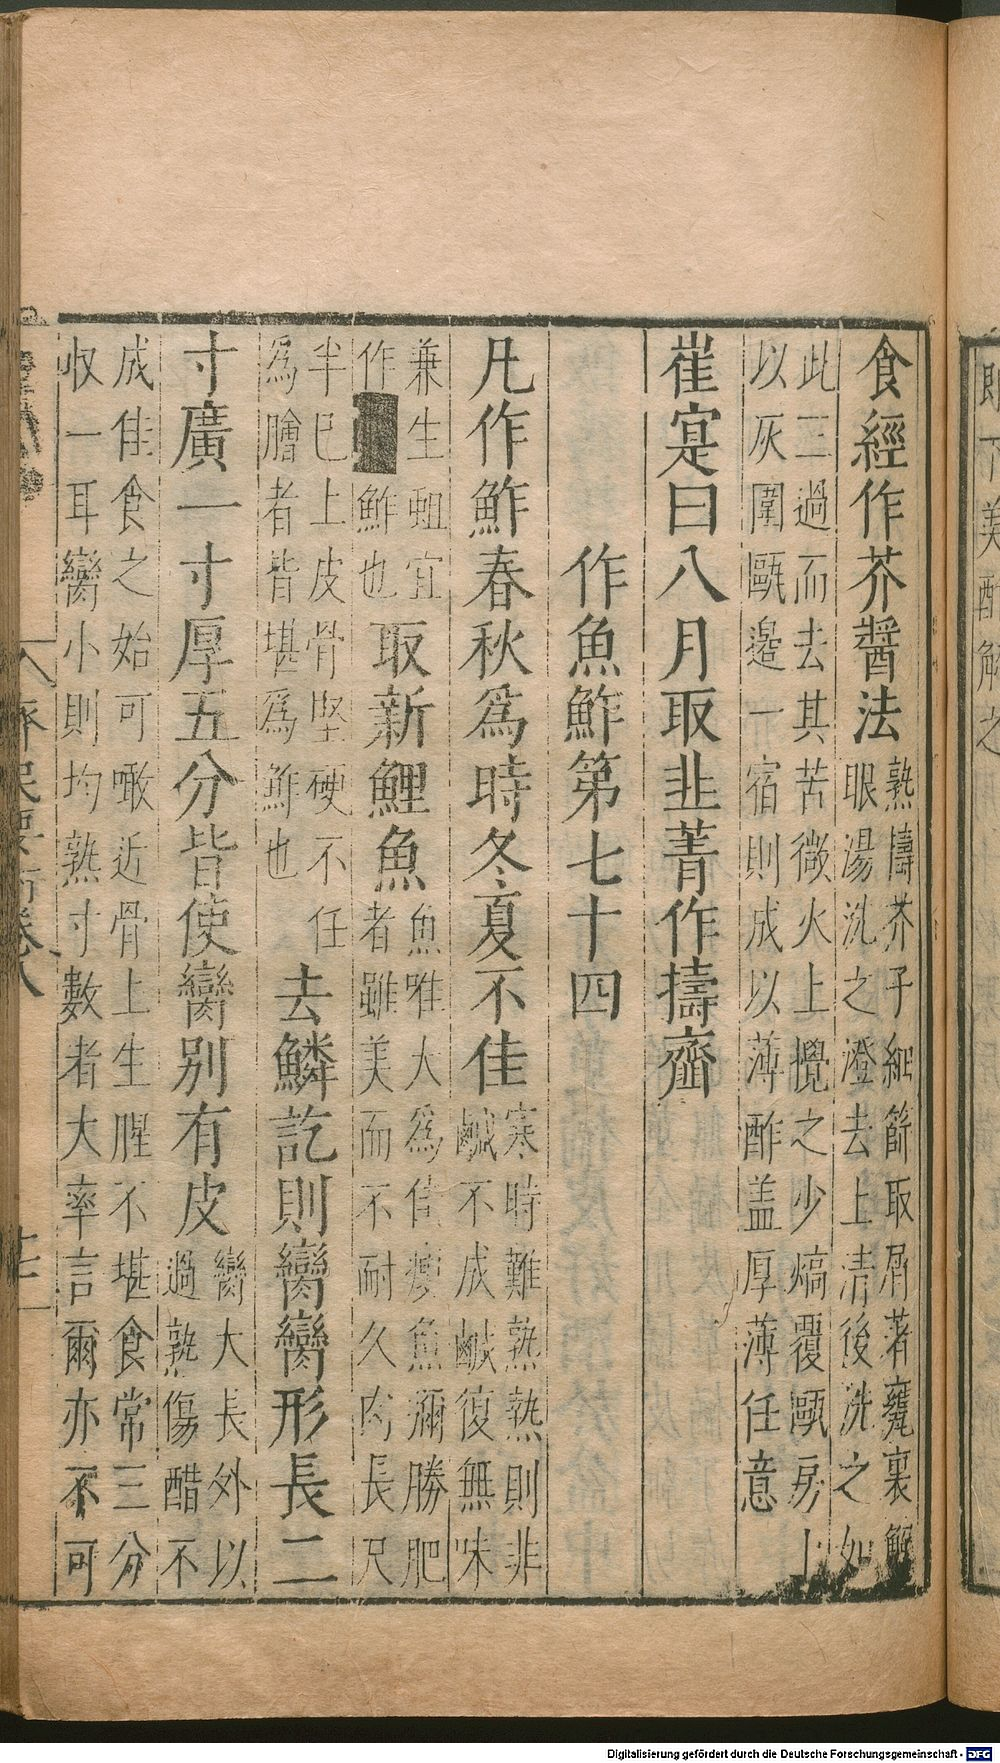 食經作芥醬法 熟擣芥子細篩取屑著甕裏解
眼湯洗之澄去上清後洗之如
此三過而去其苦微火上攪之少熇覆甌
以灰圍甌邊一宿則成以薄酢盖厚薄任意
崔寔曰八月取韭菁作擣齏
作魚鮓第七十四
凡作鮓春秋爲時冬夏不佳 寒時難熟熟則非
鹹不成鹹復無味
兼生蛆宜
作鮓也 取新鯉魚 魚唯大爲佳瘦魚彌勝肥
者雖美而不耐久肉長尺
半已上皮骨堅硬不任
爲膾者皆堪爲鮓也 去鱗訖則臠臠形長二
寸廣一寸厚五分皆使臠别有皮 臠大長外以
過熟傷醋不
成佳食之始可噉近骨上生腥不堪食常三分
收一耳臠小則均熟寸數者大率言爾亦不可
齊民要術卷八
即下美酢解之
Digitalisierung gefördert durch die Deutsche Forschungsgemeinschaft - DFG